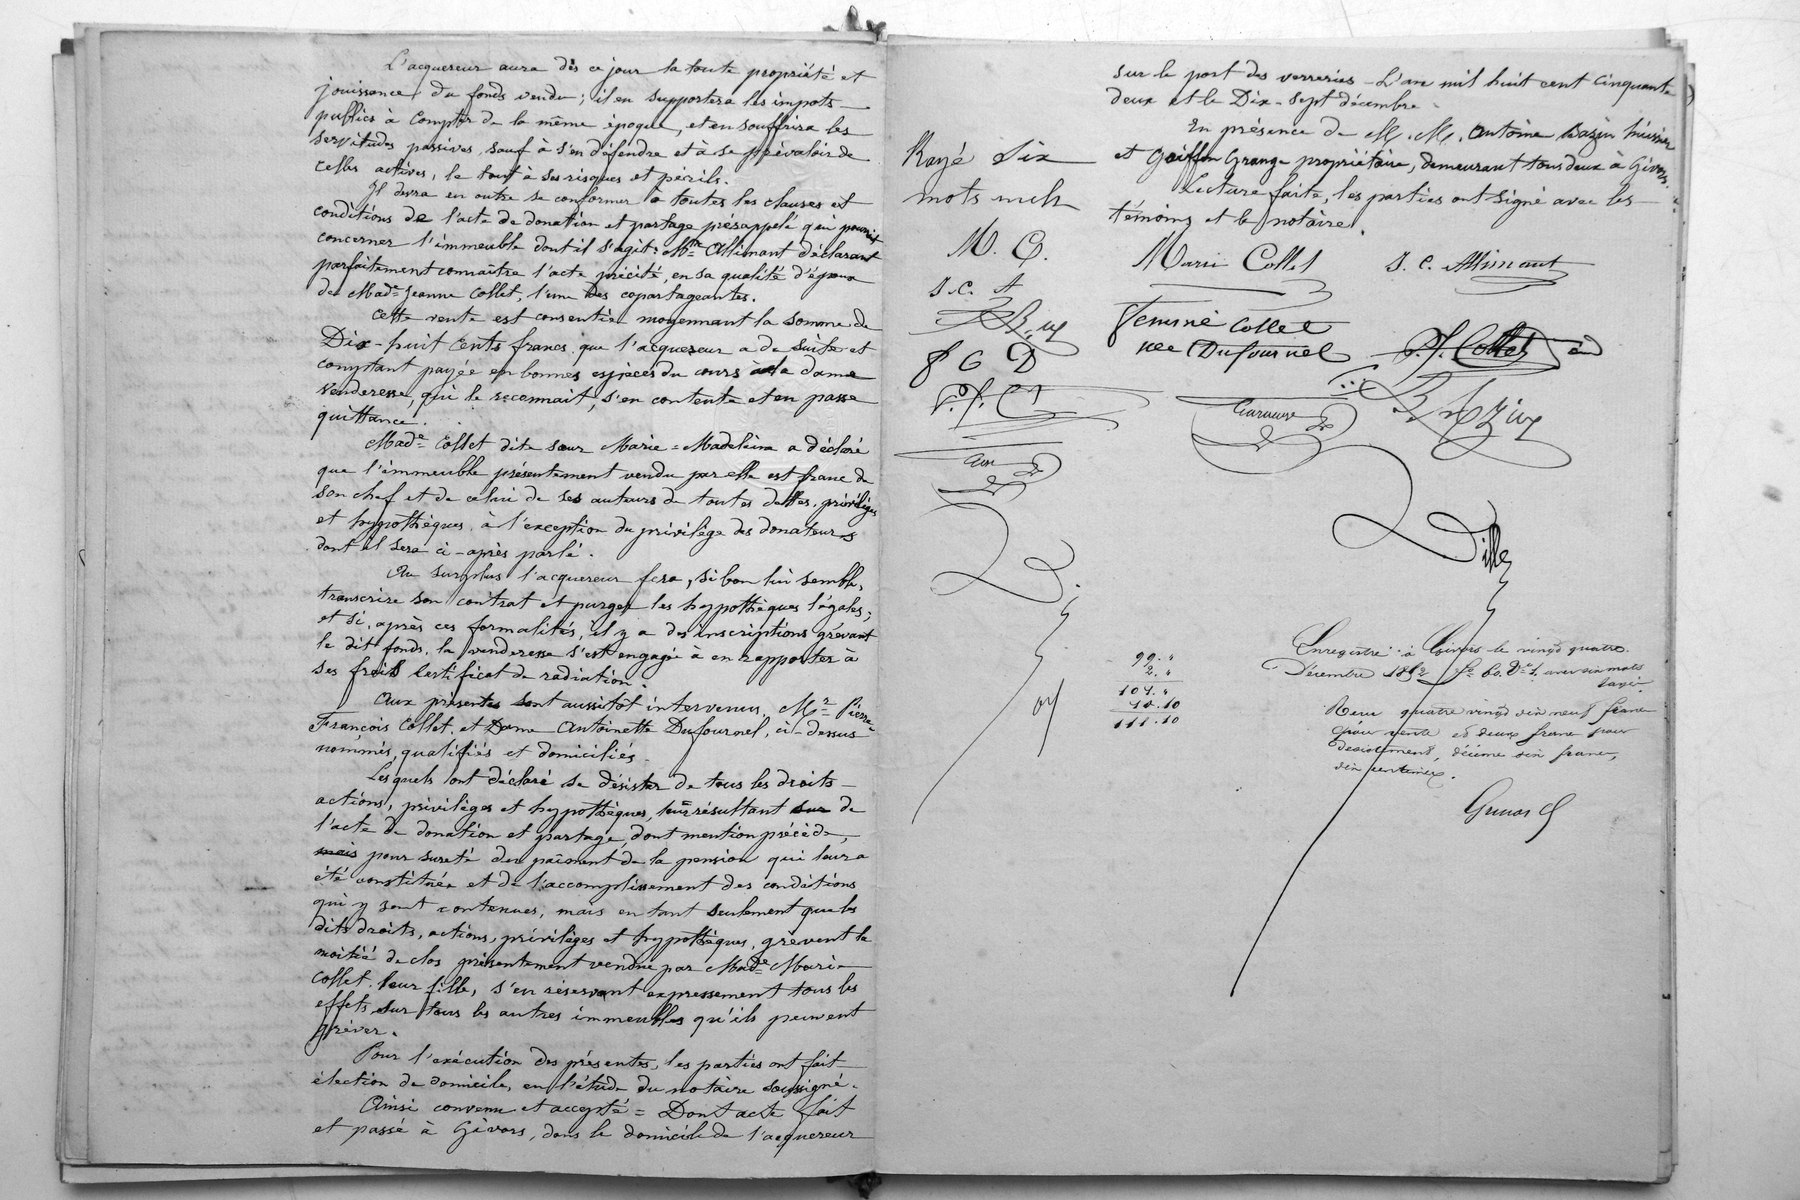 L'acquereur aura dès ce jour la toute propriété et
jouissance du fonds vendu ; il en supportera les impots
publics à compter de la même époque, et en souffrira les
servitudes passives, sauf à s'en défendre et à se prévaloir de
celles actives, le tout à ses risques et périls.
Il devra en outre se conformer à toutes les clauses et
conditions de l'acte de donation et partage présappelé qui pourrait
concerner l'immeuble dont il s'agit : Mr Allimant déclarant
parfaitement connaître l'acte précité, en sa qualité d'époux
de Made Jeanne Collet, l'une des copartageantes.
Cette vente est consentie moyennant la somme de
Dix-huit Cents francs que l'acquereur a de suite et
comptant payée en bonnes espèces du cours à la dame
venderesse, qui le reconnait, s'en contente et en passe
quittance.
Made Collet dite sœur Marie = Madeleine a déclaré
que l'immeuble présentement vendu par elle est franc de
son chef et de celui de ses auteurs de toutes dettes, privilèges
et hypothèques, à l'exception du privilège des donateurs
dont il sera ci-après parlé.
Au surplus l'acquereur fera, si bon lui semble,
transcrire son contrat et purger les hypothèques légales ;
et si, après ces formalités, il y a des inscriptions grévant
le dit fonds, la venderesse s'est engagée à en rapporter à
ses frais certificat de radiation.
Aux présentes sont aussitôt intervenus, Mr Pierre
François Collet, et Dame Antoinette Dufournel, ci-dessus
nommés, qualifiés et domiciliés.
Lesquels ont déclaré se désister de tous les droits
actions, privilèges et hypothèques, leur résultant sur de
l'acte de donation et partage, dont mention précède,
mais pour sureté du paiement de la pension qui leur a
été constituée et de l'accomplissement des conditions
qui y sont contenues, mais en tant seulement que les
dits droits, actions, privilèges et hypothèques, grèvent la
moitié de clos présentement vendue par Made Marie
Collet, leur fille, s'en réservant expressement tous les
effets sur tous les autres immeubles qu'ils peuvent
gréver.
Pour l'exécution des présentes, les parties ont fait
élection de domicile, en l'étude du notaire soussigné.
Ainsi convenu et accepté = Dont acte fait
et passé à Givors, dans le domicile de l'acquereur
sur le port des verreries - L'an mil huit cent cinquante
deux et le Dix-sept décembre.
En présence de M. M. Antoine Bazin huissier
et Goiffon Grange propriétaire, demeurant tous deux à Givors.
Lecture faite, les parties ont signé avec les
témoins et le notaire.
Rayé six
mots nuls
M. C.
J. C. A
F C D
P. f. C
Marie Collet
J. C. Allimant
femme Collet
née Dufournel
P. f. Collet
Bazin
Dille
99. "
2. "
101. "
10.10
111.10
Enregistré à Givors le vingt quatre
Décembre 1852
Reçu quatre vingt dix neuf francs
pour vente et deux francs pour
desistement, décime dix francs,
dix centimes.